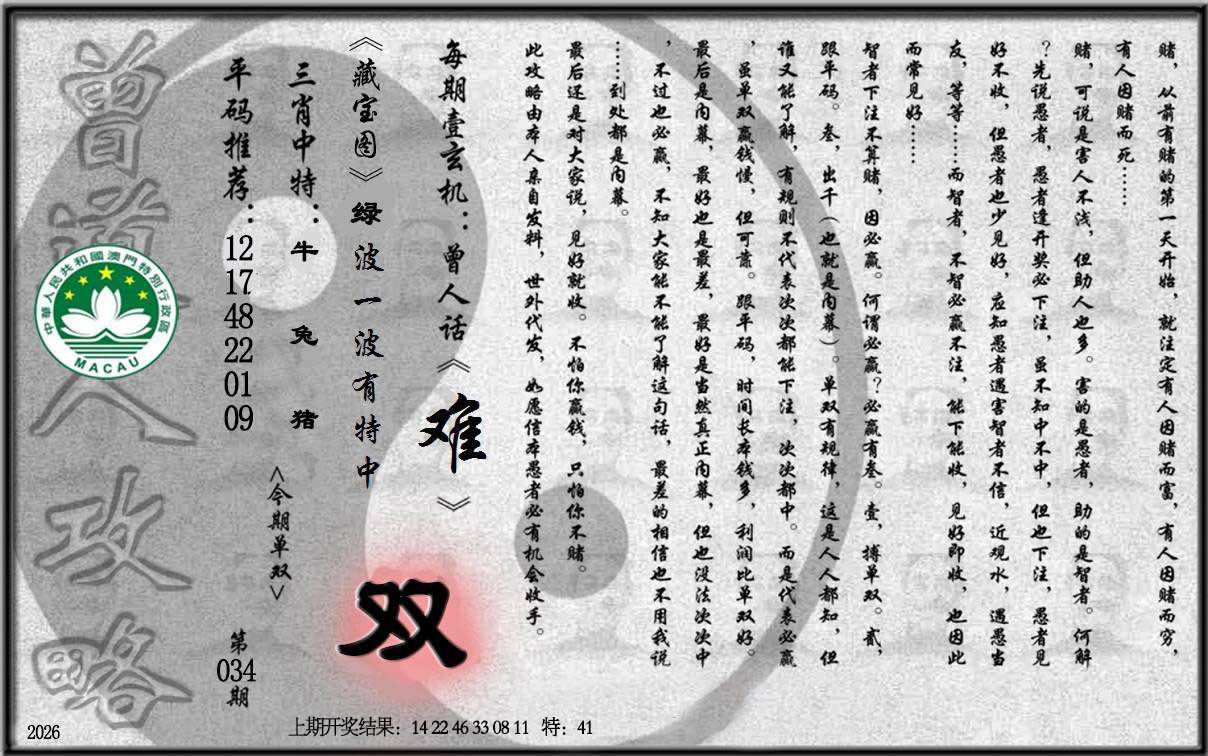 赌，从前有赌的第一天开始，就注定有人因赌而富，有人因赌而穷，
有人因赌而死……
赌，可说是害人不浅，但助人也多。害的是愚者，助的是智者。何解
？先说愚者，愚者逢开奖必下注，虽不知中不中，但也下注，愚者见
好不收，但愚者也少见好，应知愚者遇害智者不信，近观水，遇愚当
友，等等……而智者，不智必赢不注，能下能收，见好即收，也因此
而常见好……
智者下注不算赌，因必赢。何谓必赢？必赢有叁。壹，搏单双。贰，
跟平码。叁，出千（也就是内幕）。单双有规律，这是人人都知，但
谁又能了解，有规则不代表次次都能下注，次次都中。而是代表必赢
，虽单双赢钱慢，但可靠。跟平码，时间长本钱多，利润比单双好。
最后是内幕，最好也是最差，最好是当然真正内幕，但也没法次次中
，不过也必赢，不知大家能不能了解这句话，最差的相信也不用我说
……到处都是内幕。
最后还是对大家说，见好就收。不怕你赢钱，只怕你不赌。
此攻略由本人亲自发料，世外代发，如愿信本愚者必有机会收手。
每期壹玄机：曾人话《难》
《藏宝图》绿波一波有特中
双
三肖中特：牛 兔 猪
<今期单双>
平码推荐：12 17 48 22 01 09
第034期
曾道人攻略
中華人民共和國澳門特別行政區
MACAU
上期开奖结果：14 22 46 33 08 11 特：41
2026